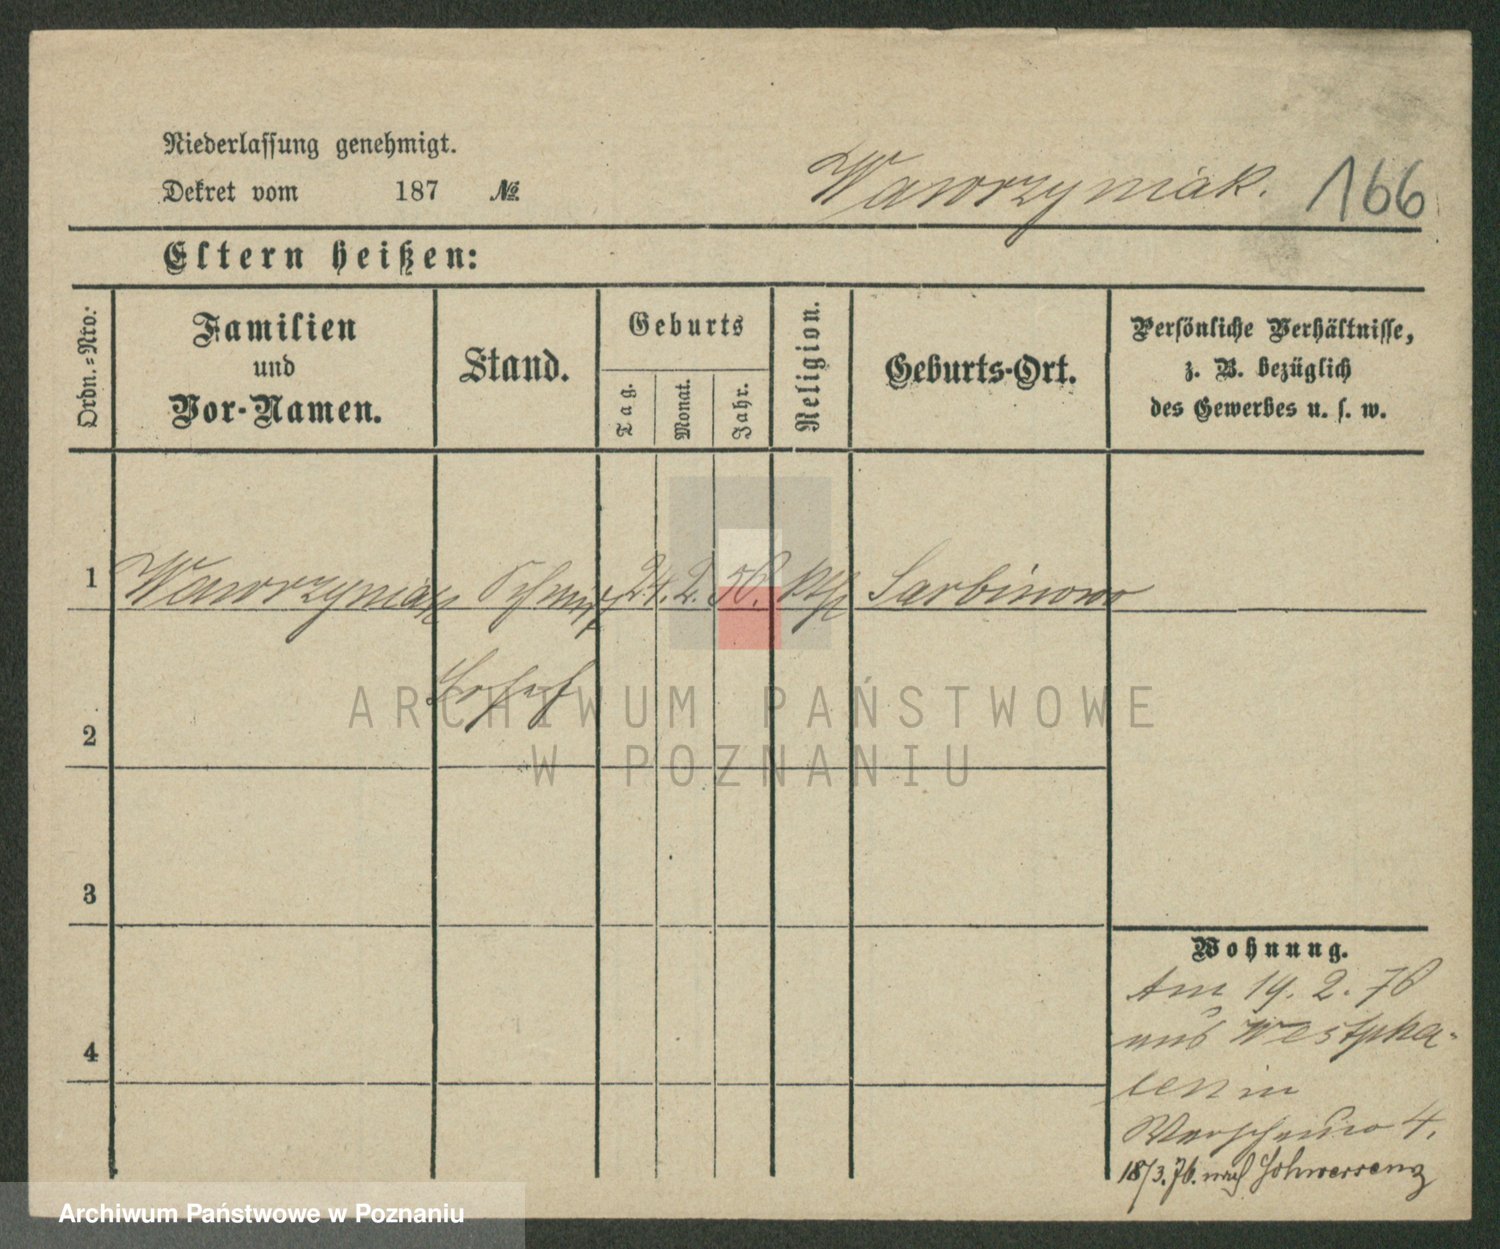 Niederlassung genehmigt.
Dekret vom 187 №
Wawrzyniak. 166
Eltern heißen:
Ordn.=Nro.
Familien
und
Vor-Namen.
Stand.
Geburts
Tag.
Monat.
Jahr.
Religion.
Geburts-Ort.
Persönliche Verhältnisse,
z. B. bezüglich
des Gewerbes u. s. w.
1 Wawrzyniak 24. 2. 56. kth Sarbinowo
Josef
2
3
4
Wohnung.
Am 19. 2. 76
aus Westpha-
len in
4.
18/3. 76. nach Schwersenz
ARCHIWUM PAŃSTWOWE
W POZNANIU
Archiwum Państwowe w Poznaniu